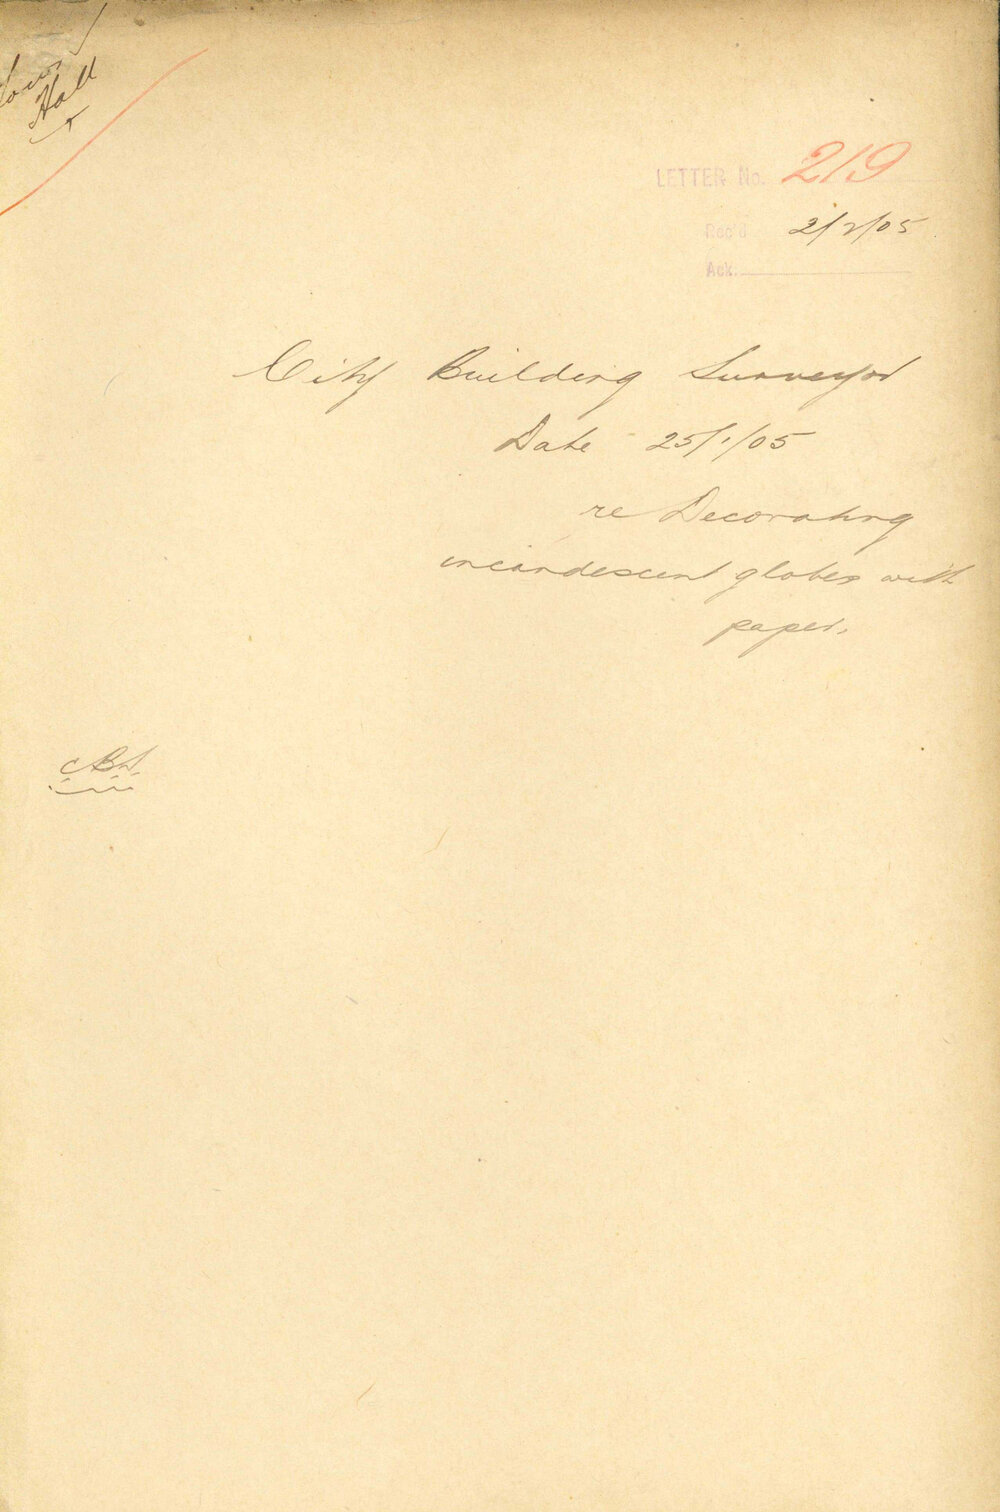 Town
Hall
LETTER No. 219
Rec'd 2/2/05
Ack.
City Building Surveyor
Date 25/1/05
re Decorating
incandescent globes with
paper.
CBS